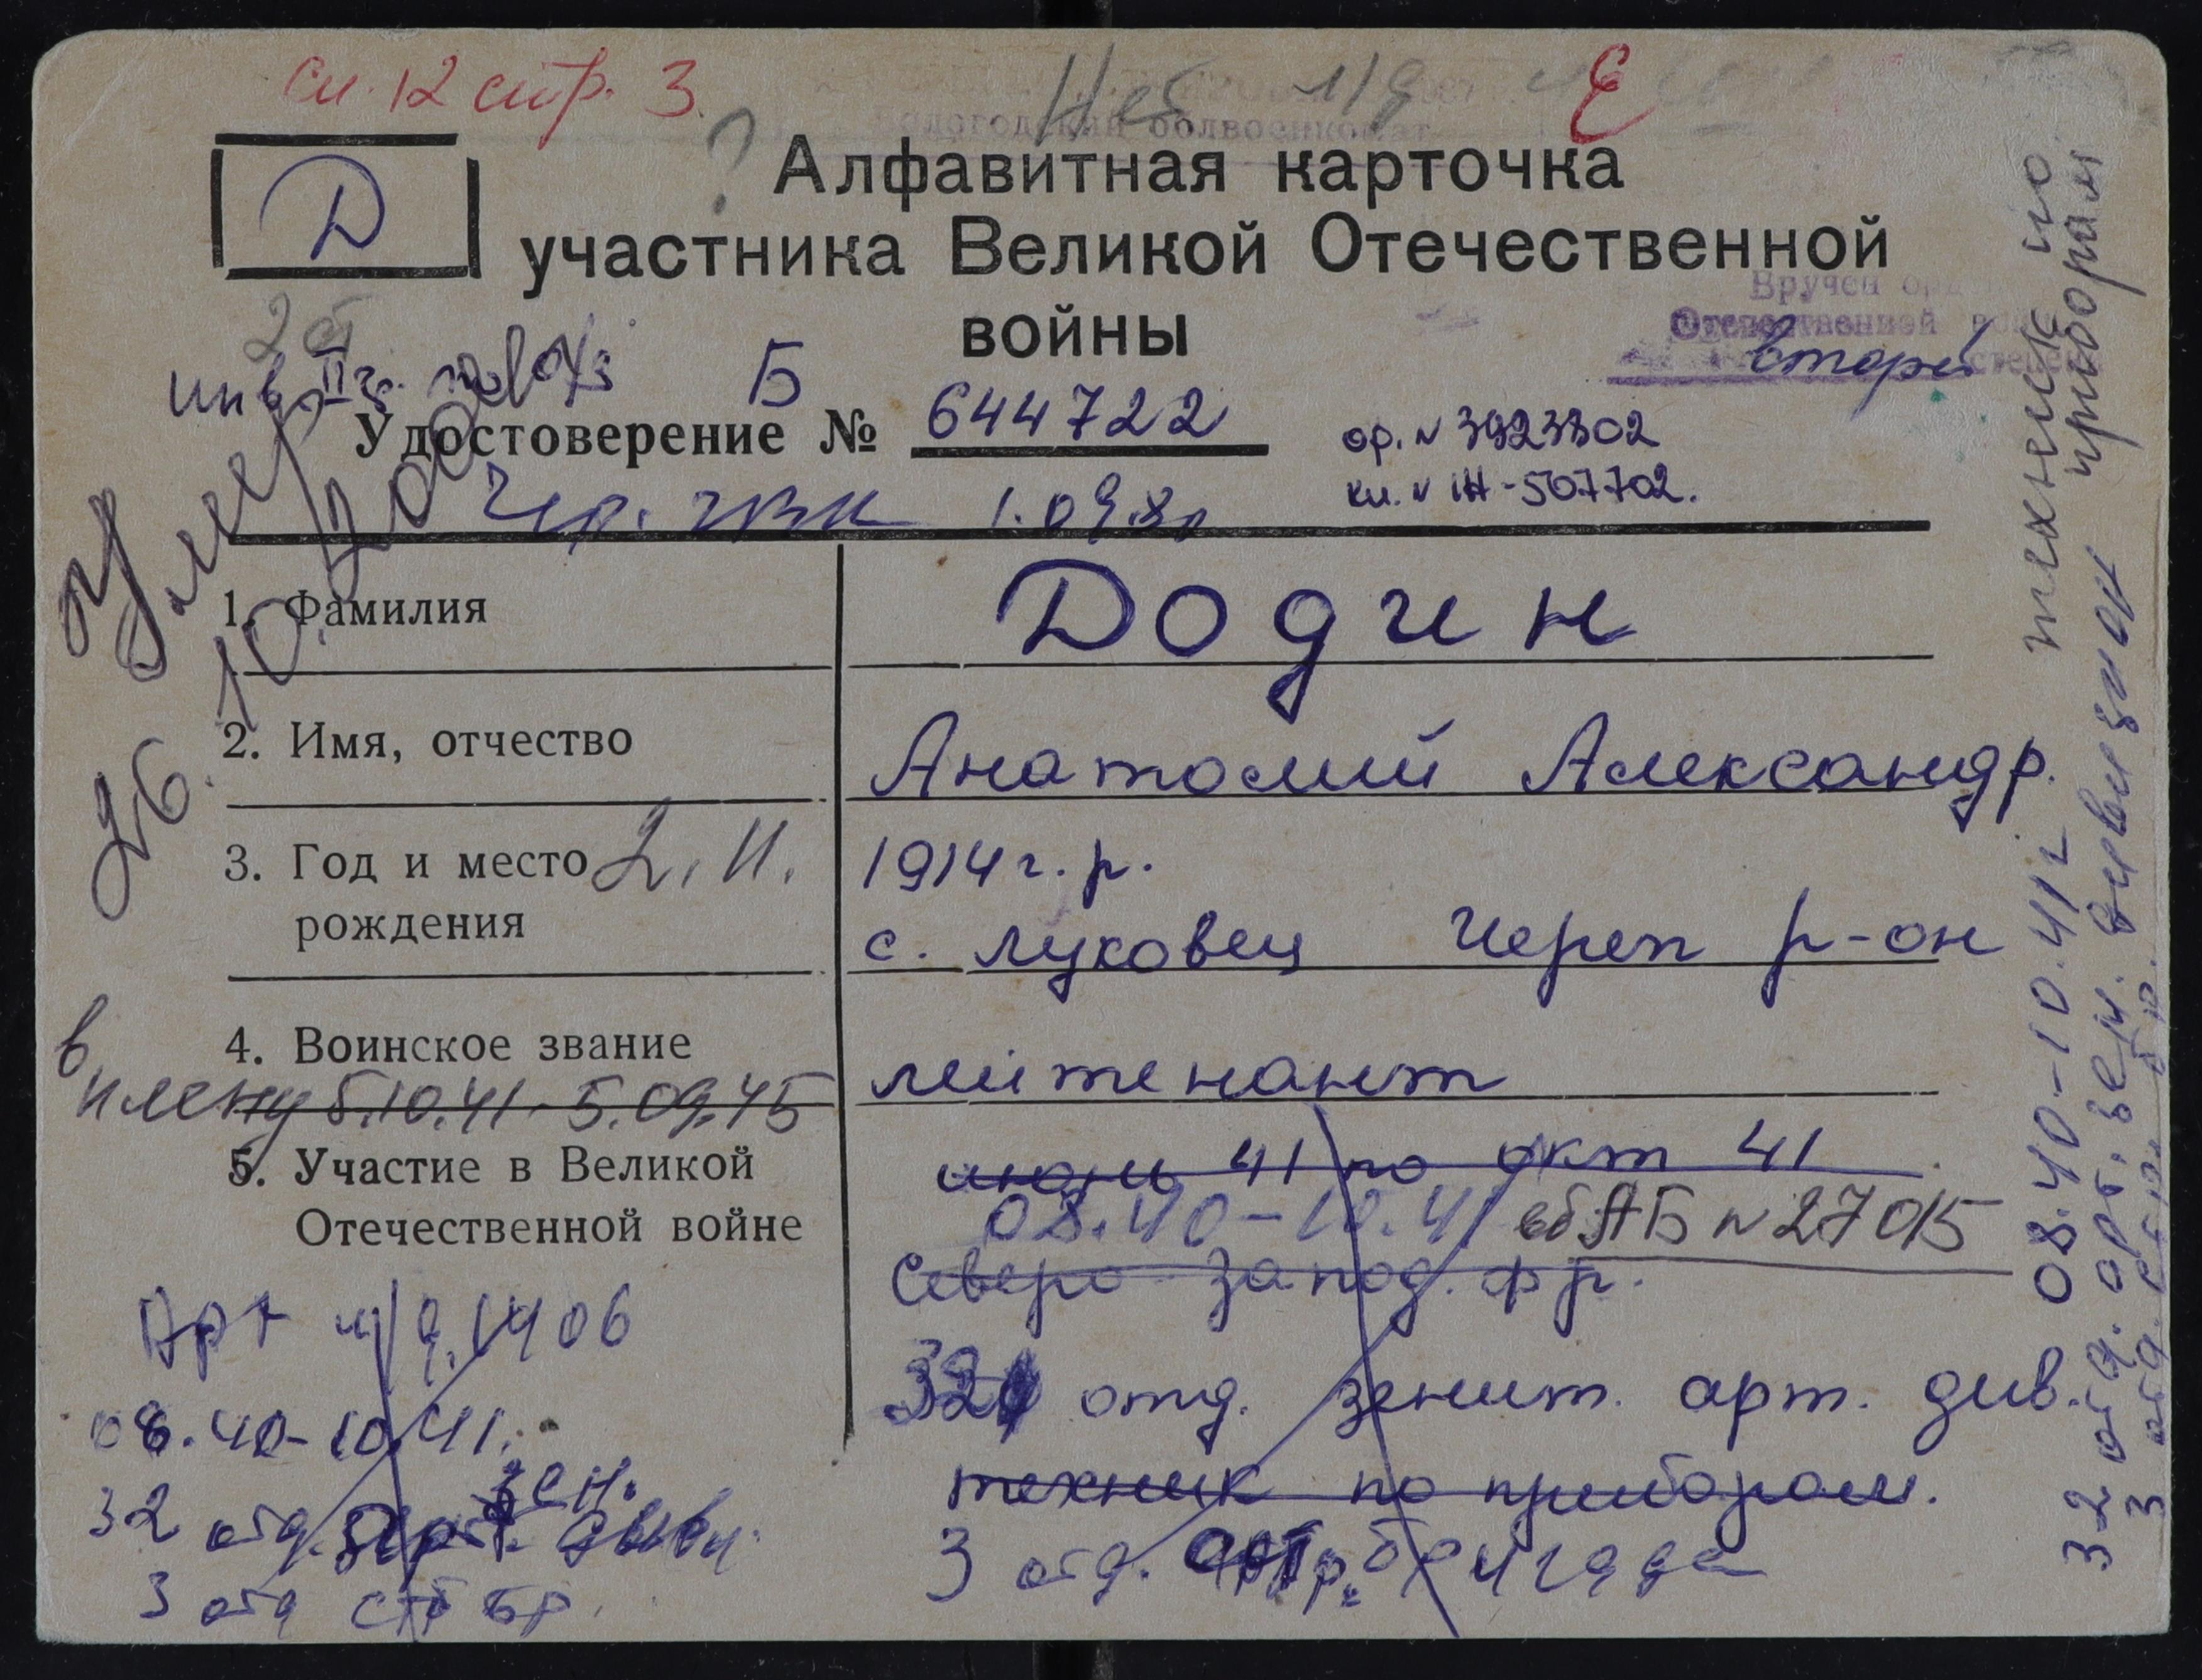 см. 12 стр. 3.
Нет
Е
облвоенкомат
?
Д
Алфавитная карточка
участника Великой Отечественной
войны
Вручен
Отечественной
второй
2 ст
инв. IIг.
Б
Удостоверение № 644722
ор. № 3923302
кн. №
-507702.
Чер. ГВК 1.09.80
Умер
26. 10. 2000
1. Фамилия
Додин
2. Имя, отчество
Анатолий Александр.
3. Год и место
рождения
2. 11.
1914 г. р.
с. Луковец Череп р-он
4. Воинское звание
лейтенант
в
плену 5.10.41-5.09.45
5. Участие в Великой
Отечественной войне
июнь 41 по окт 41
08.40-10.41
АБ № 27015
Северо-запад. фр.
отд. зенит. арт. див.
техник по приборам.
3 отд. стр. бригада
Арт 1406
08.40-10.41.
32 отд. зен.
3 отд стр бр.
08.40-10.41г техник по
приборам
32 отд. арт. зен. дивизион
3 отд. бр.